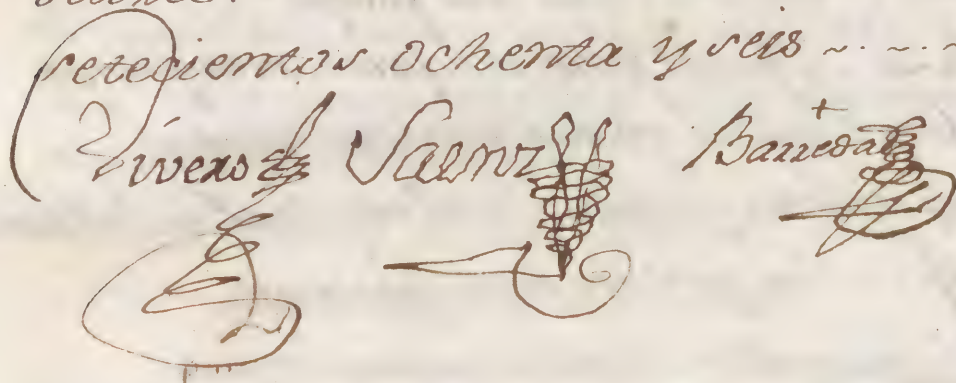 setecientos ochenta y seis ~.~.~
Rivero Saenz Barreda